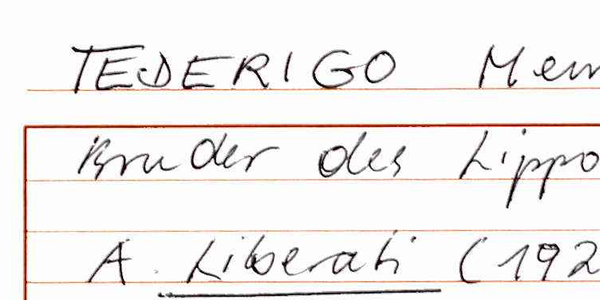 TEDERIGO Mem
Bruder des Lippo
A. Liberati (192